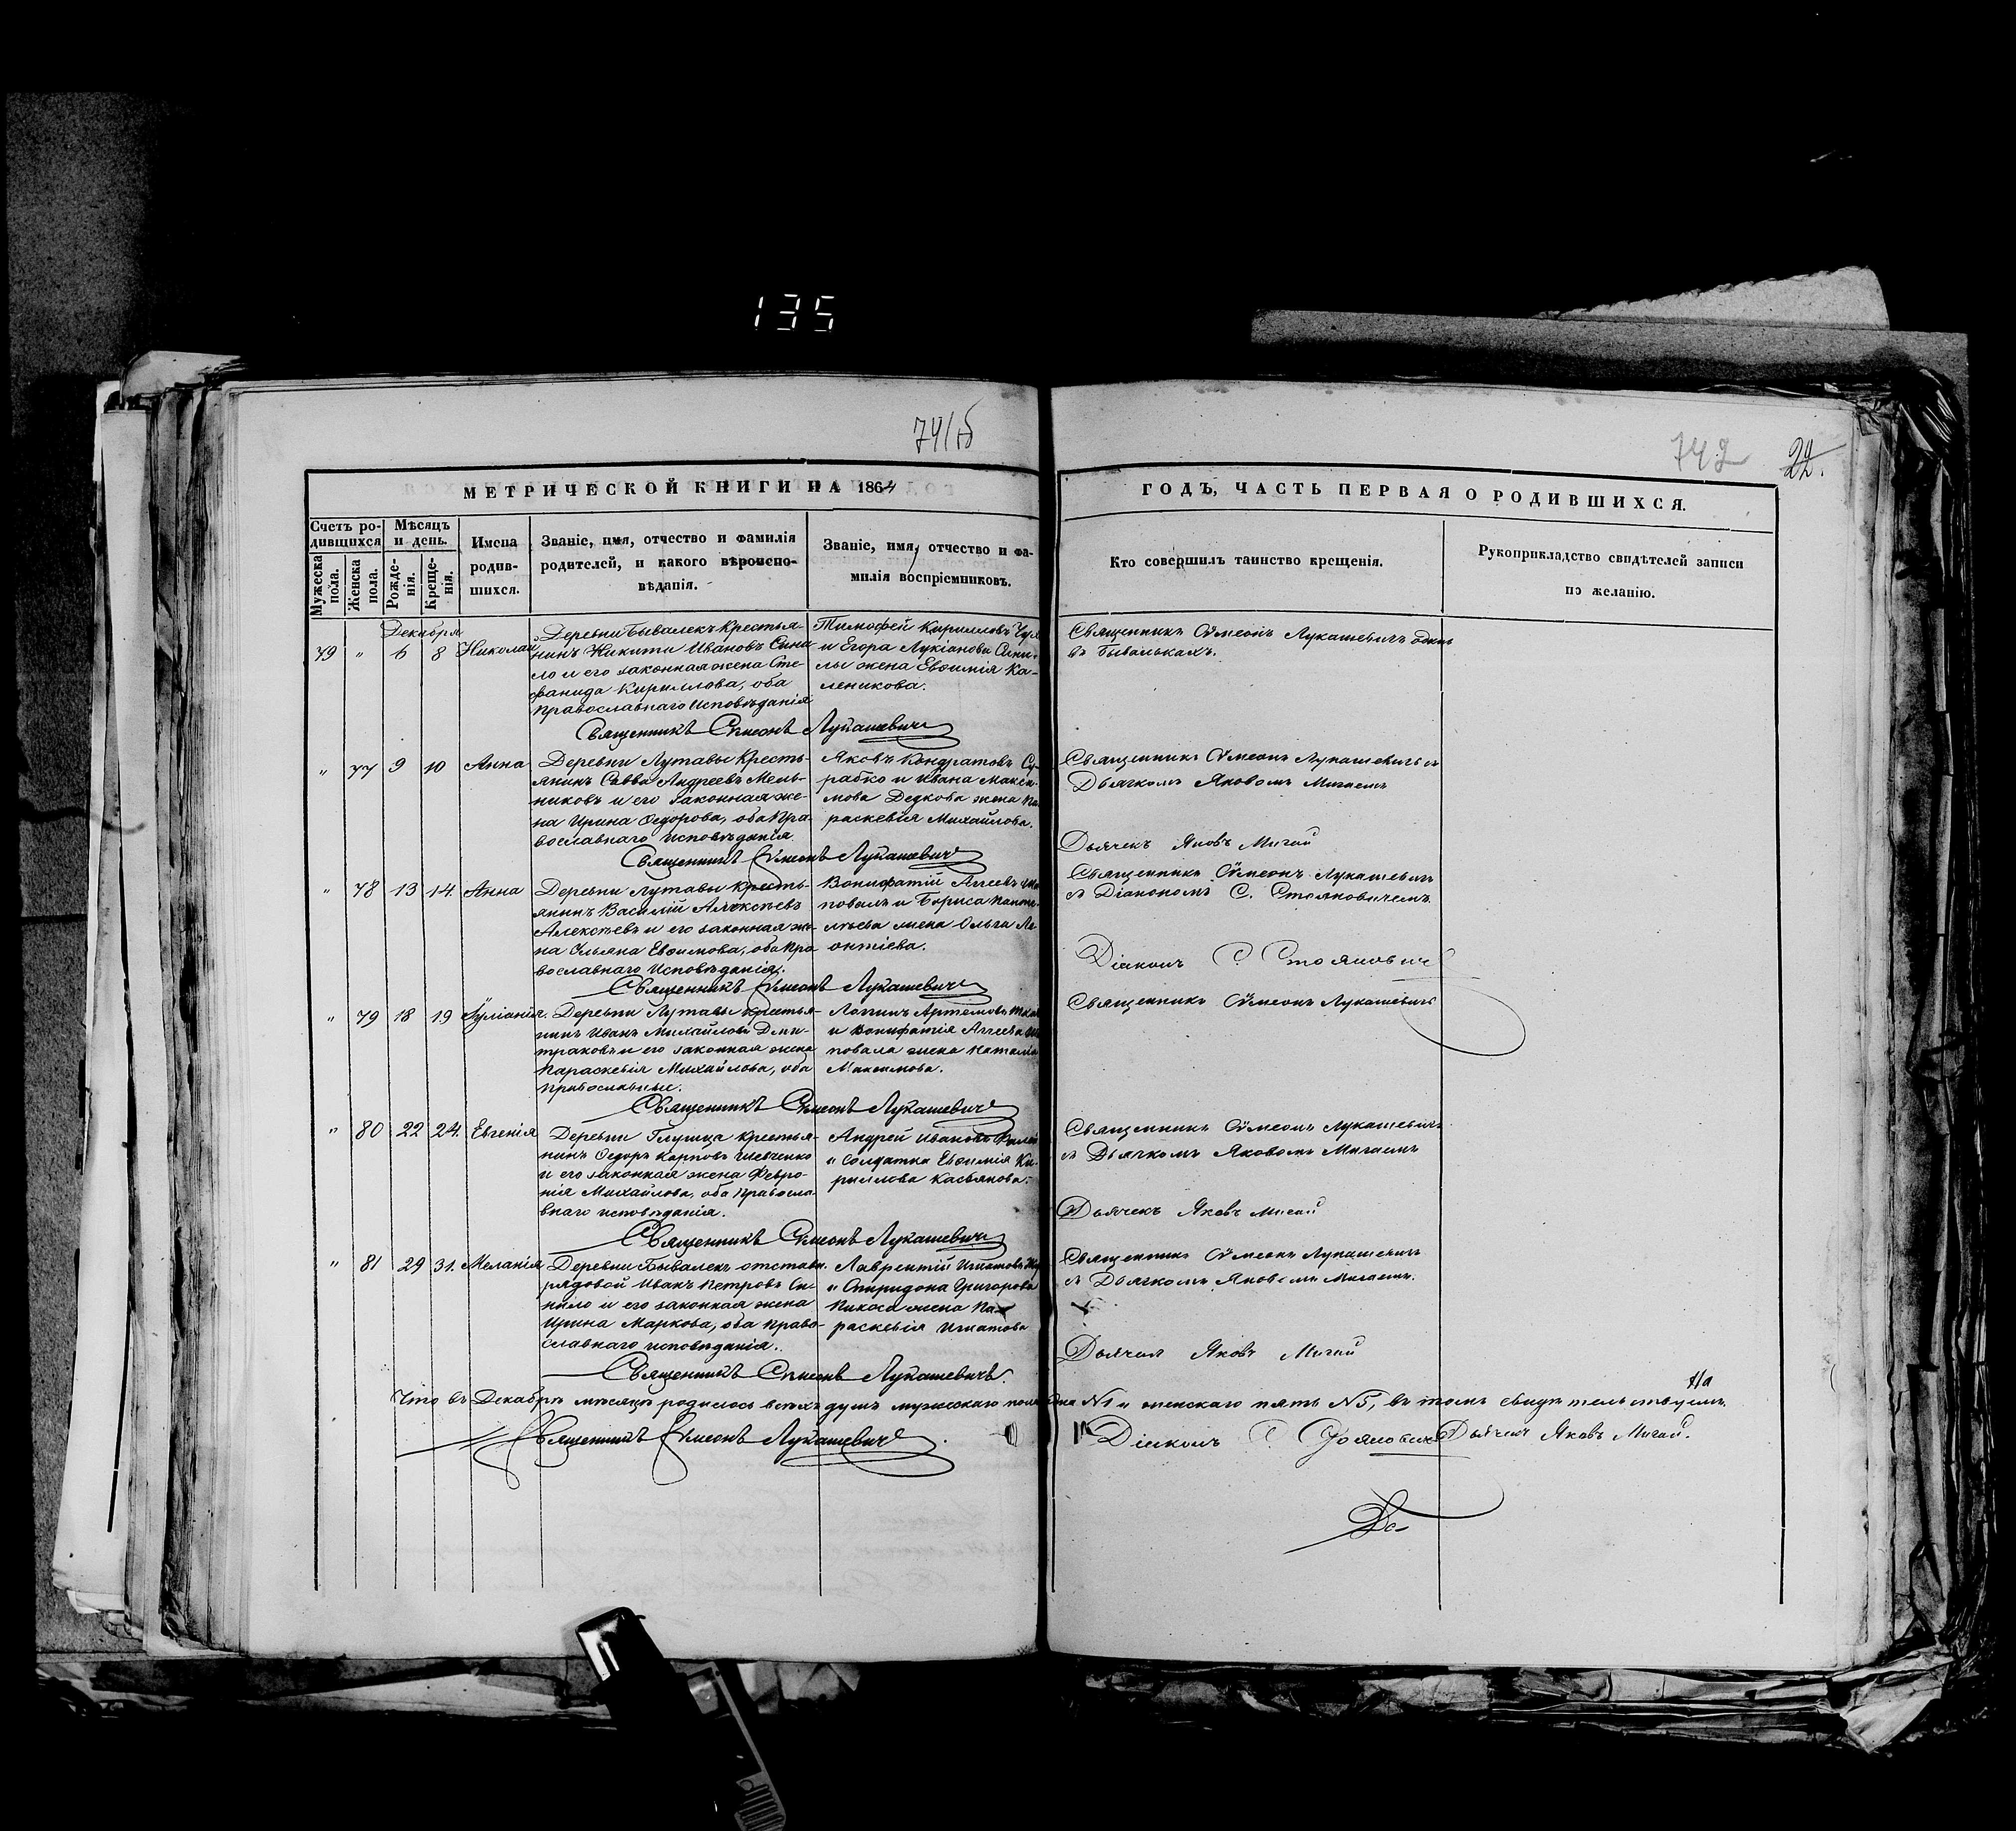 135
741б
742
22.
МЕТРИЧЕСКОЙ КНИГИ НА 1864
ГОДЪ, ЧАСТЬ ПЕРВАЯ О РОДИВШИХСЯ.
Счетъ ро-
дившихся
Мужеска пола.
Женска пола.
Мѣсяцъ
и день.
Рожде-
нія.
Креще-
нія.
Имена
родив-
шихся.
Званіе, имя, отчество и фамилія
родителей, и какого вѣроиспо-
вѣданія.
Званіе, имя, отчество и фа-
милія воспріемниковъ.
Кто совершилъ таинство крещенія.
Рукоприкладство свидѣтелей записи
по желанію.
Декабря
79 " 6 8 Николай
Деревни Бывалекъ Крестья-
нинъ Никита Ивановъ Сини-
ло и его законная жена Сте-
фанида Кириллова, оба
Православнаго Исповѣданія
Тимофей Кирилловъ
и Егора Лукіанова Сини-
лы жена Евѳимія Ка-
леникова.
Священникъ Сѵмеонъ Лукашевичъ одинъ
въ Бывалькахъ.
Священникъ Сѵмеонъ Лукашевичъ
" 77 9 10 Анна
Деревни Лутавы Кресть-
янинъ Савва Андреевъ Мель-
никовъ и его законная же-
на Ирина Ѳедорова, оба Пра-
вославнаго исповѣданія
Яковъ Кондратовъ Су-
рабко и Ивана Макси-
мова Дедкова жена Па-
раскевія Михайлова.
Священникъ Сѵмеонъ Лукашевичъ съ
Дьячкомъ Яковомъ Мигаемъ
Дьячекъ Яковъ Мигай
Священникъ Сѵмеонъ Лукашевичъ
" 78 13 14 Анна
Деревни Лутавы Кресть-
янинъ Василій Алексѣевъ
Алексѣевъ и его законная же-
на Ульяна Евѳимова, оба Пра-
вославнаго Исповѣданія.
Вонифатій Аггеевъ
повалъ и Бориса
жена Ольга Ле-
онтіева.
Священникъ Сѵмеонъ Лукашевичъ
съ Діакономъ С. Стояновичемъ
Діаконъ С. Стояновичъ
Священникъ Сѵмеонъ Лукашевичъ
" 79 18 19 Іуліанія
Деревни Лутавы Крестья-
нинъ Иванъ Михайловъ Дми-
траковъ и его законная жена
Параскевія Михайлова, оба
православные.
Лонгинъ Артемовъ
и Вонифатія Аггеева
повала жена Наталія
Максимова.
Священникъ Сѵмеонъ Лукашевичъ
Священникъ Сѵмеонъ Лукашевичъ
" 80 22 24. Евгенія
Деревни Глушца крестья-
нинъ Ѳедоръ Карповъ Шевченко
и его законная жена Февро-
нія Михайлова, оба Правосла-
внаго исповѣданія.
Андрей Ивановъ
и Солдатка Евѳимія Ки-
риллова Касьянова.
Священникъ Сѵмеонъ Лукашевичъ
съ Дьячкомъ Яковомъ Мигаемъ
Дьячекъ Яковъ Мигай
Священникъ Сѵмеонъ Лукашевичъ
" 81 29 31. Меланія
Деревни Бывалекъ отставн.
рядовой Иванъ Петровъ Си-
нило и его законная жена
Ирина Маркова, оба Право-
славнаго исповѣданія.
Лаврентій Игнатовъ
и Спиридона Григорова
жена Па-
раскевія Игнатова
Священникъ Сѵмеонъ Лукашевичъ
съ Дьячкомъ Яковомъ Мигаемъ.
Дьячекъ Яковъ Мигай
Священникъ Сѵмеонъ Лукашевичъ.
Что въ Декабрѣ мѣсяцѣ родилось всѣхъ душъ мужескаго пола одна №1 и женскаго пять №5, въ томъ свидѣтельствуемъ.
Священникъ Сѵмеонъ Лукашевичъ.
Діаконъ С. Стояновичъ Дьячекъ Яковъ Мигай.